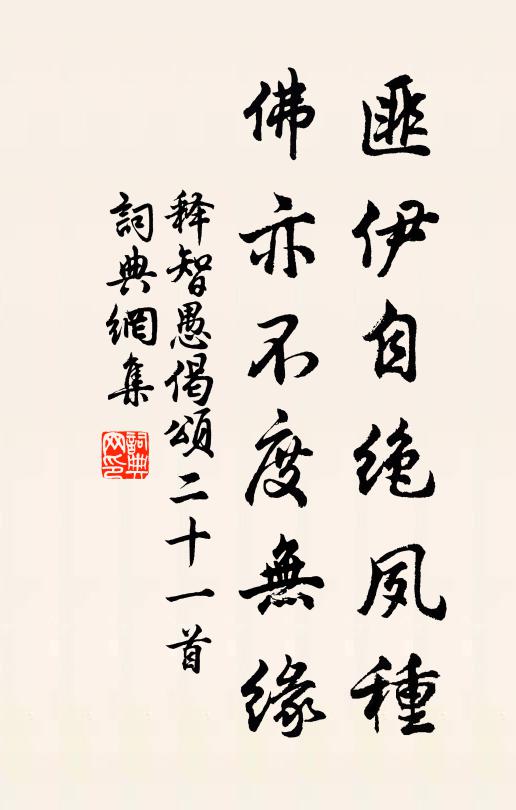 匪伊自絶夙種
佛亦不度無緣
释智愚偈頌二十一首
詞典網集
詞典网印